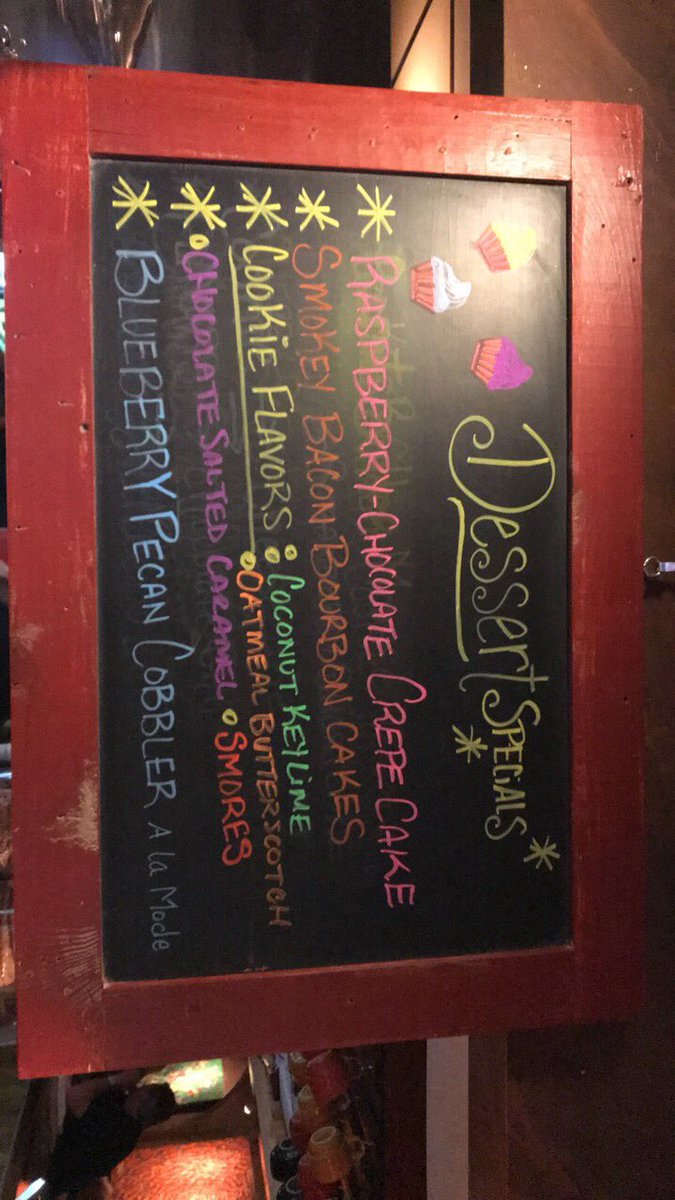 Dessert SPECIALS
RASPBERRY-CHOCOLATE CREPE CAKE
SMOKEY BACON BOURBON CAKES
COOKIE FLAVORS: COCONUT KEY LIME
OATMEAL BUTTERSCOTCH
CHOCOLATE SALTED CARAMEL • SMORES
BLUEBERRY PECAN COBBLER A la Mode